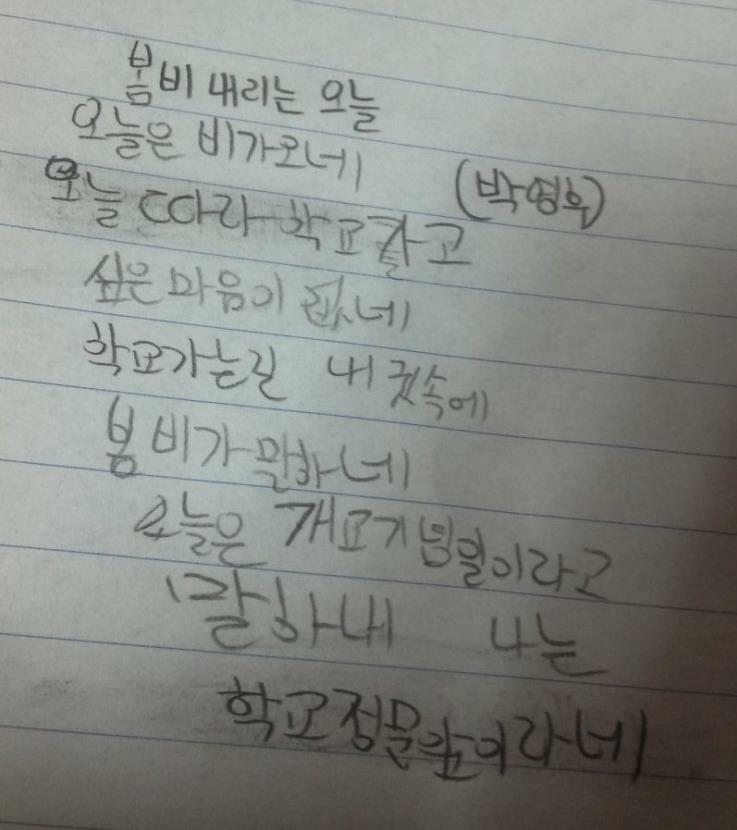 봄비 내리는 오늘
오늘은 비가오네
(박영후)
오늘 따라 학교갈고
싶은 마음이 없네
학교가는길 내 귓속에
봄비가 말하네
오늘은 개교기념일이라고
말하내 나는
학교정문앞이라네